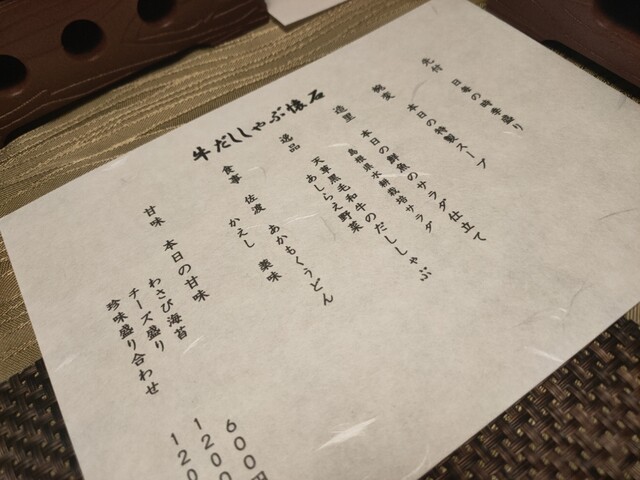 牛だししゃぶ懐石
先付 日毎の時季盛り
椀変 本日の特製スープ
造里 本日の鮮魚のサラダ仕立て
島根県水耕栽培サラダ
逸品 天草黒毛和牛のだししゃぶ
あしらえ野菜
食事 佐渡 あかもくうどん
かえし 薬味
甘味 本日の甘味
わさび海苔 600円
チーズ盛り 1200
珍味盛り合わせ 120